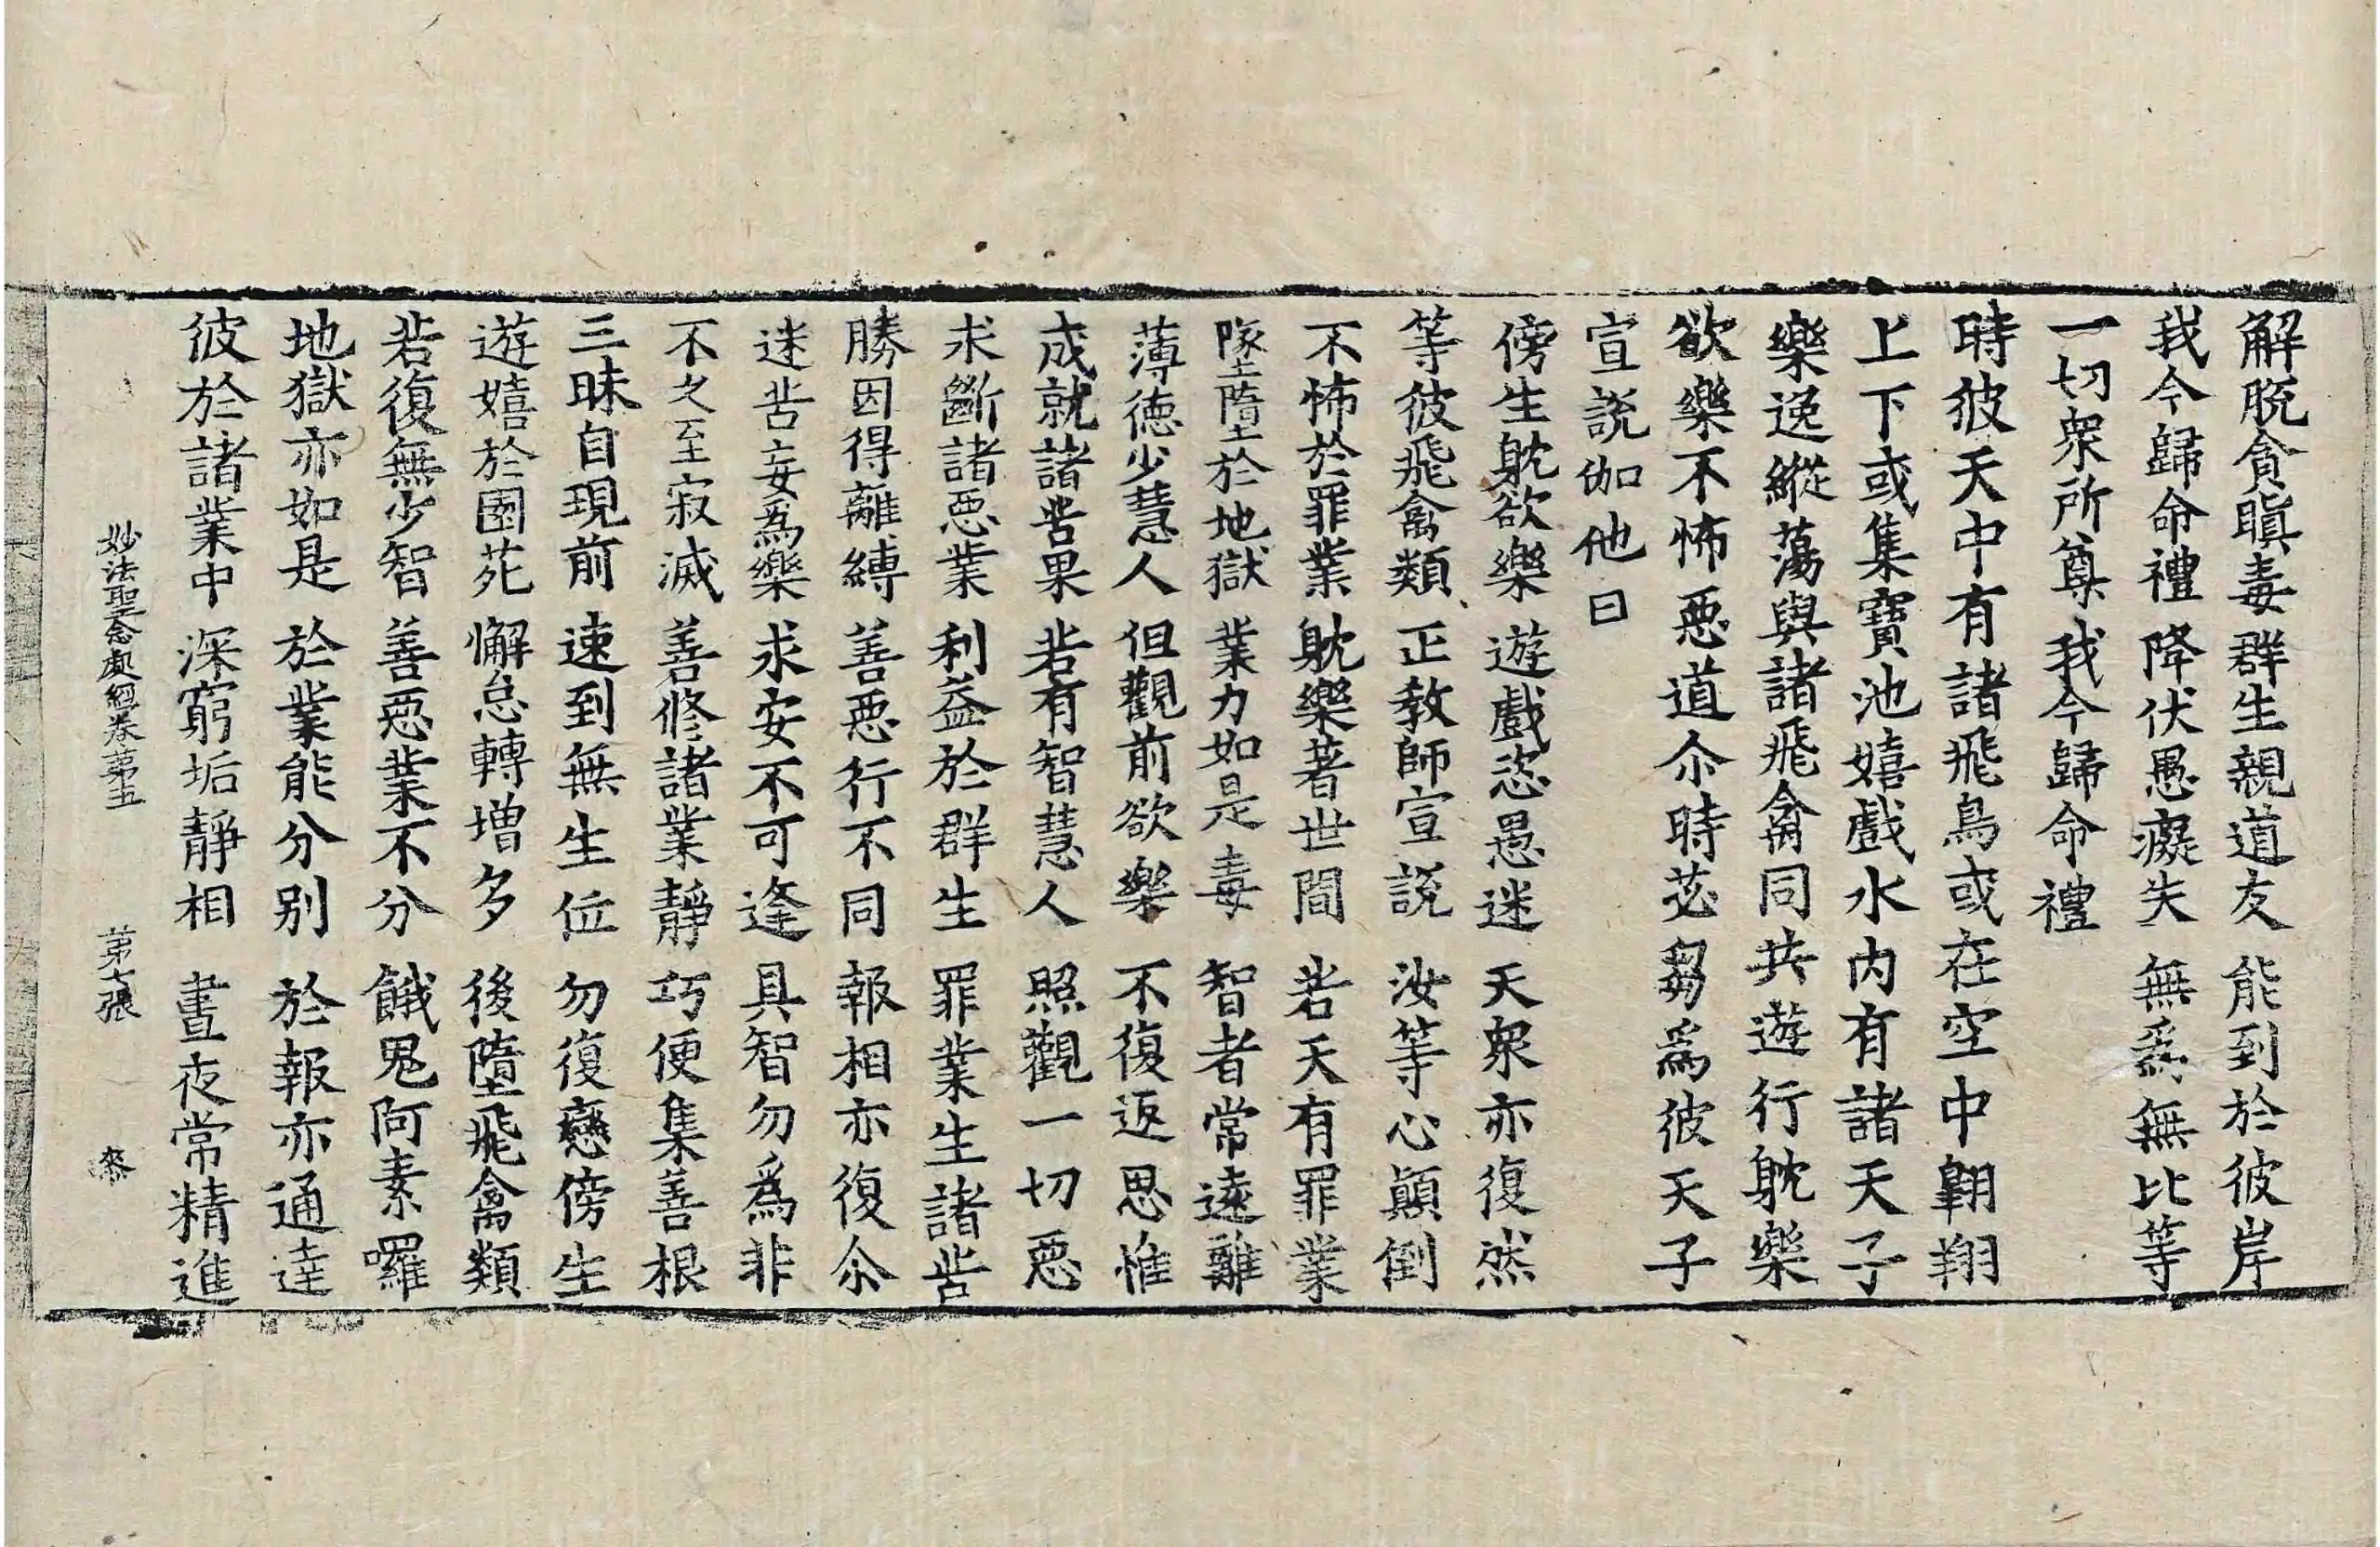 解脫貪瞋毒 群生親道友 能到於彼岸
我今歸命禮 降伏愚癡失 無爲無比等
一切衆所尊 我今歸命禮
時彼天中有諸飛鳥或在空中翺翔
上下或集寶池嬉戲水內有諸天子
樂逸縱蕩與諸飛禽同共遊行躭樂
欲樂不怖惡道尒時苾芻爲彼天子
宣說伽他曰
傍生躭欲樂 遊戲恣愚迷 天衆亦復然
等彼飛禽類 正教師宣說 汝等心顚倒
不怖於罪業 躭樂著世間 若天有罪業
墜墮於地獄 業力如是毒 智者常遠離
薄德少慧人 但觀前欲樂 不復返思惟
成就諸苦果 若有智慧人 照觀一切惡
求斷諸惡業 利益於群生 罪業生諸苦
勝因得離縛 善惡行不同 報相亦復尒
迷苦妄爲樂 求安不可逢 具智勿爲非
不久至寂滅 善修諸業靜 巧便集善根
三昧自現前 速到無生位 勿復戀傍生
遊嬉於園苑 懈怠轉增多 後墮飛禽類
若復無少智 善惡業不分 餓鬼阿素囉
地獄亦如是 於業能分別 於報亦通達
彼於諸業中 深窮垢靜相 晝夜常精進
妙法聖念處經卷第五 第七張